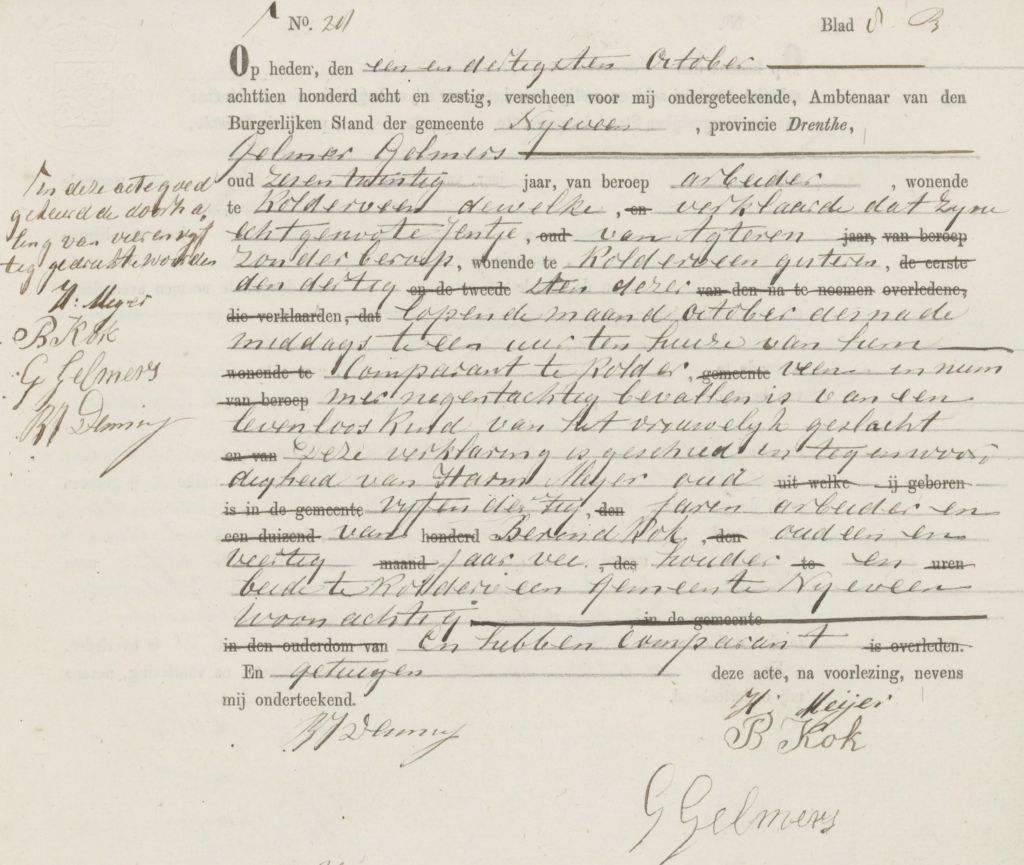 No. 201 Blad 8 B
Op heden, den een en dertigsten October
achttien honderd acht en zestig, verscheen voor mij ondergeteekende, Ambtenaar van den
Burgerlijken Stand der gemeente Nyeveen, provincie Drenthe,
Gelmer Gelmers
oud zesentwintig jaar, van beroep arbeider, wonende
te Kolderveen dewelke, en verklaarde dat zyne
echtgenoote Jentje, oud van Agteren jaar, van beroep
zonder beroep, wonende te Kolderveen gisteren, de eerste
den dertig en de tweede sten dezer van den na te noemen overledene,
die verklaarden, dat loopende maand october des na de
middags te een uur ten huize van hem
wonende te Comparant te Kolder, gemeente veen in num
van beroep mer negentachtig bevallen is van een
levenloos kind van het vrouwelyk geslacht
en van Deze verklaring is geschied in tegenwoor
digheid van Harm Meyer oud uit welke ij geboren
is in de gemeente vyfendertig, den jaren arbeider en
een duizend van honderd Berend Kok, den oud een en
veertig maand jaar vee, des houder te en uren
beide te Kolderveen Gemeente Nyeveen
woonachtig in de gemeente
in den ouderdom van En hebben Comparant is overleden.
En getuigen deze acte, na voorlezing, nevens
mij onderteekend.
H: Meijer
B Kok
G Gelmers
In deze acte goed
gekeurd de doorha
ling van vierenvyf
tig gedrukte woorden
H: Meyer
B Kok
G Gelmers